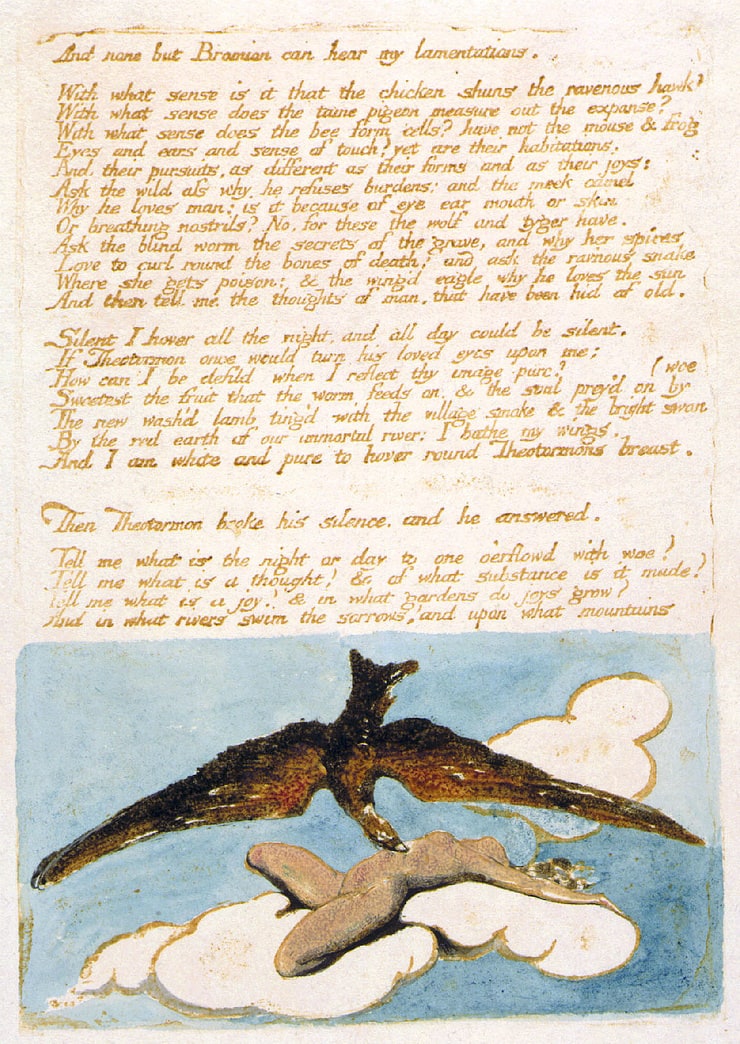 And none but Bromion can hear my lamentations.
With what sense is it that the chicken shuns the ravenous hawk?
With what sense does the tame pigeon measure out the expanse?
With what sense does the bee form cells? have not the mouse & frog
Eyes and ears and sense of touch? yet are their habitations.
And their pursuits, as different as their forms and as their joys:
Ask the wild ass why he refuses burdens: and the meek camel
Why he loves man: is it because of eye ear mouth or skin
Or breathing nostrils? No. for these the wolf and tyger have.
Ask the blind worm the secrets of the grave, and why her spires
Love to curl round the bones of death; and ask the rav'nous snake
Where she gets poison: & the wing'd eagle why he loves the sun
And then tell me the thoughts of man, that have been hid of old.
Silent I hover all the night, and all day could be silent.
If Theotormon once would turn his loved eyes upon me;
How can I be defild when I reflect thy image pure?
(woe
Sweetest the fruit that the worm feeds on. & the soul prey'd on by
The new wash'd lamb ting'd with the village smoke & the bright swan
By the red earth of our immortal river: I bathe my wings.
And I am white and pure to hover round Theotormons breast.
Then Theotormon broke his silence. and he answered.
Tell me what is the night or day to one o'erflowd with woe?
Tell me what is a thought? & of what substance is it made?
Tell me what is a joy? & in what gardens do joys grow?
And in what rivers swim the sorrows? and upon what mountains